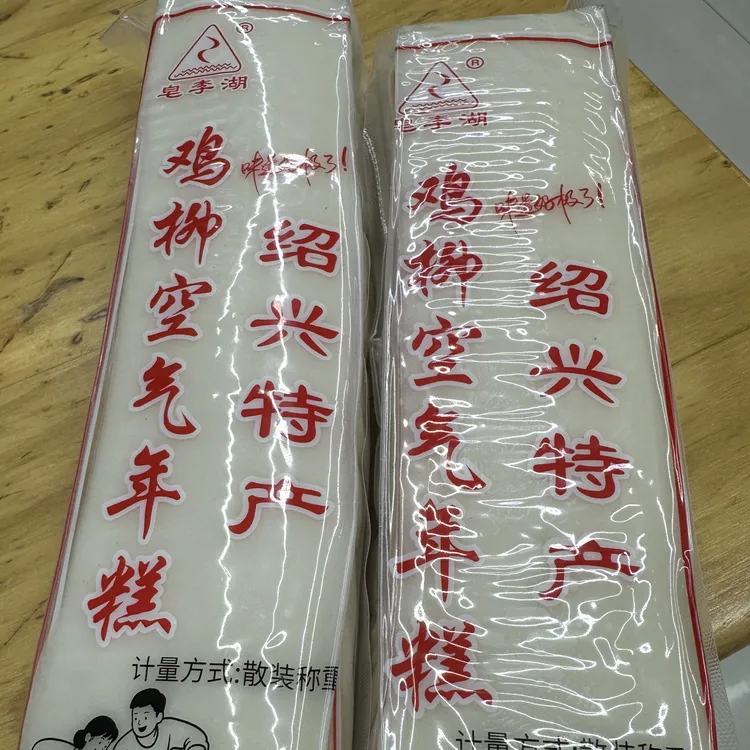 皂李湖
®
味道好极了!
鸡柳空气年糕
绍兴特产
计量方式:散装称重
®
皂李湖
味道好极了!
鸡柳空气年糕
绍兴特产
计量方式:散装称重